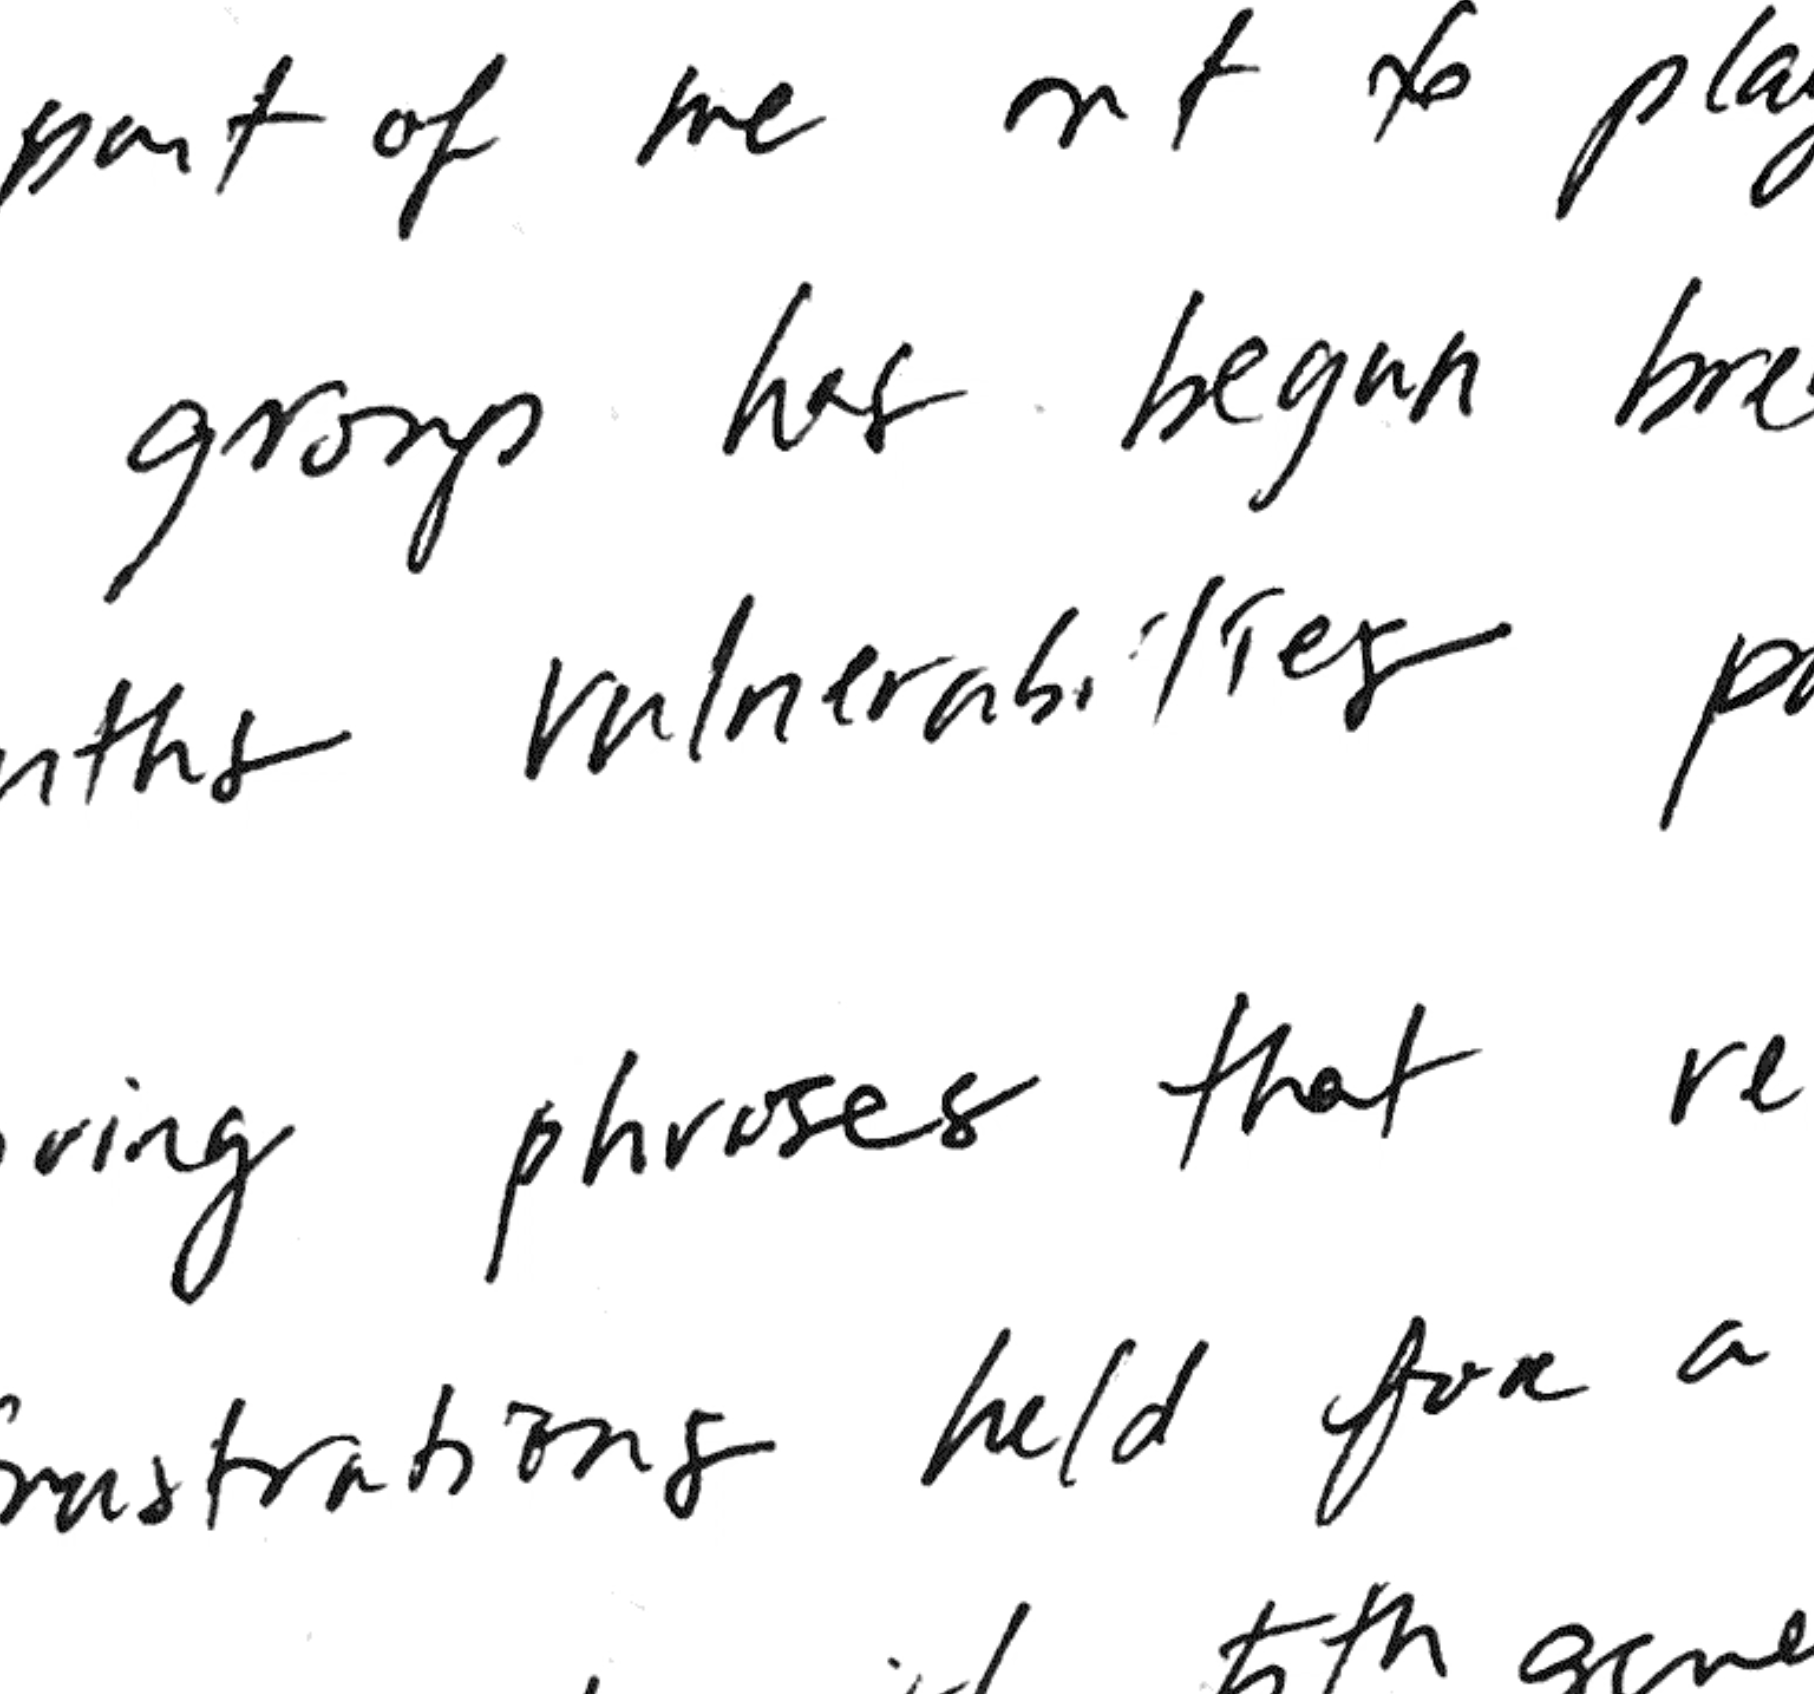 part of me not to play
group has begun brea
nths vulnerabilities pa
oring phrases that re
frustrations held for a